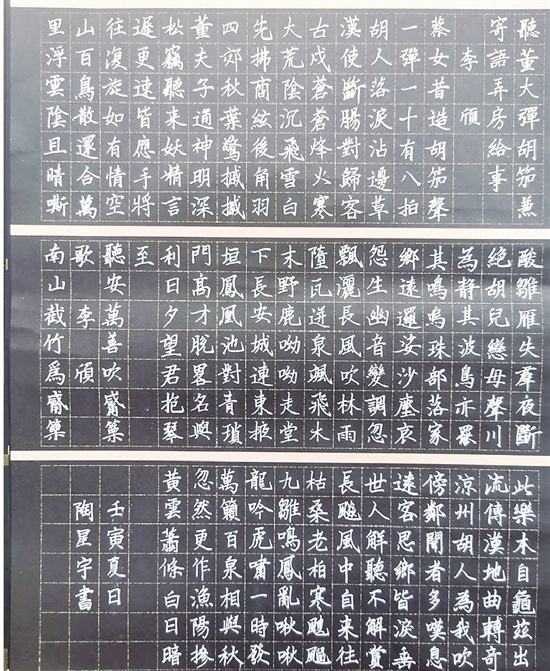 聽董大彈胡笳兼
寄語弄房給事
李頎
蔡女昔造胡笳聲
一彈一十有八拍
胡人落淚沾邊草
漢使斷腸對歸客
古戍蒼蒼烽火寒
大荒陰沉飛雪白
先拂商絃後角羽
四郊秋葉驚摵摵
董夫子通神明深
松竊聽來妖精言
遲更速皆應手將
往復旋如有情空
山百鳥散還合萬
里浮雲陰且晴嘶
酸雛雁失羣夜斷
絕胡兒戀母聲川
為靜其波鳥亦罷
其鳴烏珠部落家
鄉遠邏娑沙塵哀
怨生幽音變調忽
飄灑長風吹林雨
墮瓦迸泉颯飛木
末野鹿呦呦走堂
下長安城連東掖
垣鳳凰池對青瑣
門高才脫畧名與
利日夕望君抱琴
至
聽安萬善吹觱篥
歌 李頎
南山截竹爲觱篥
此樂本自龜茲出
流傳漢地曲轉奇
涼州胡人為我吹
傍鄰聞者多嘆息
遠客思鄉皆淚垂
世人解聽不解賞
長飈風中自來往
枯桑老柏寒颼飀
九雛鳴鳳亂啾啾
龍吟虎嘯一時發
萬籟百泉相與秋
忽然更作漁陽摻
黃雲蕭條白日暗
壬寅夏日
陶星宇書